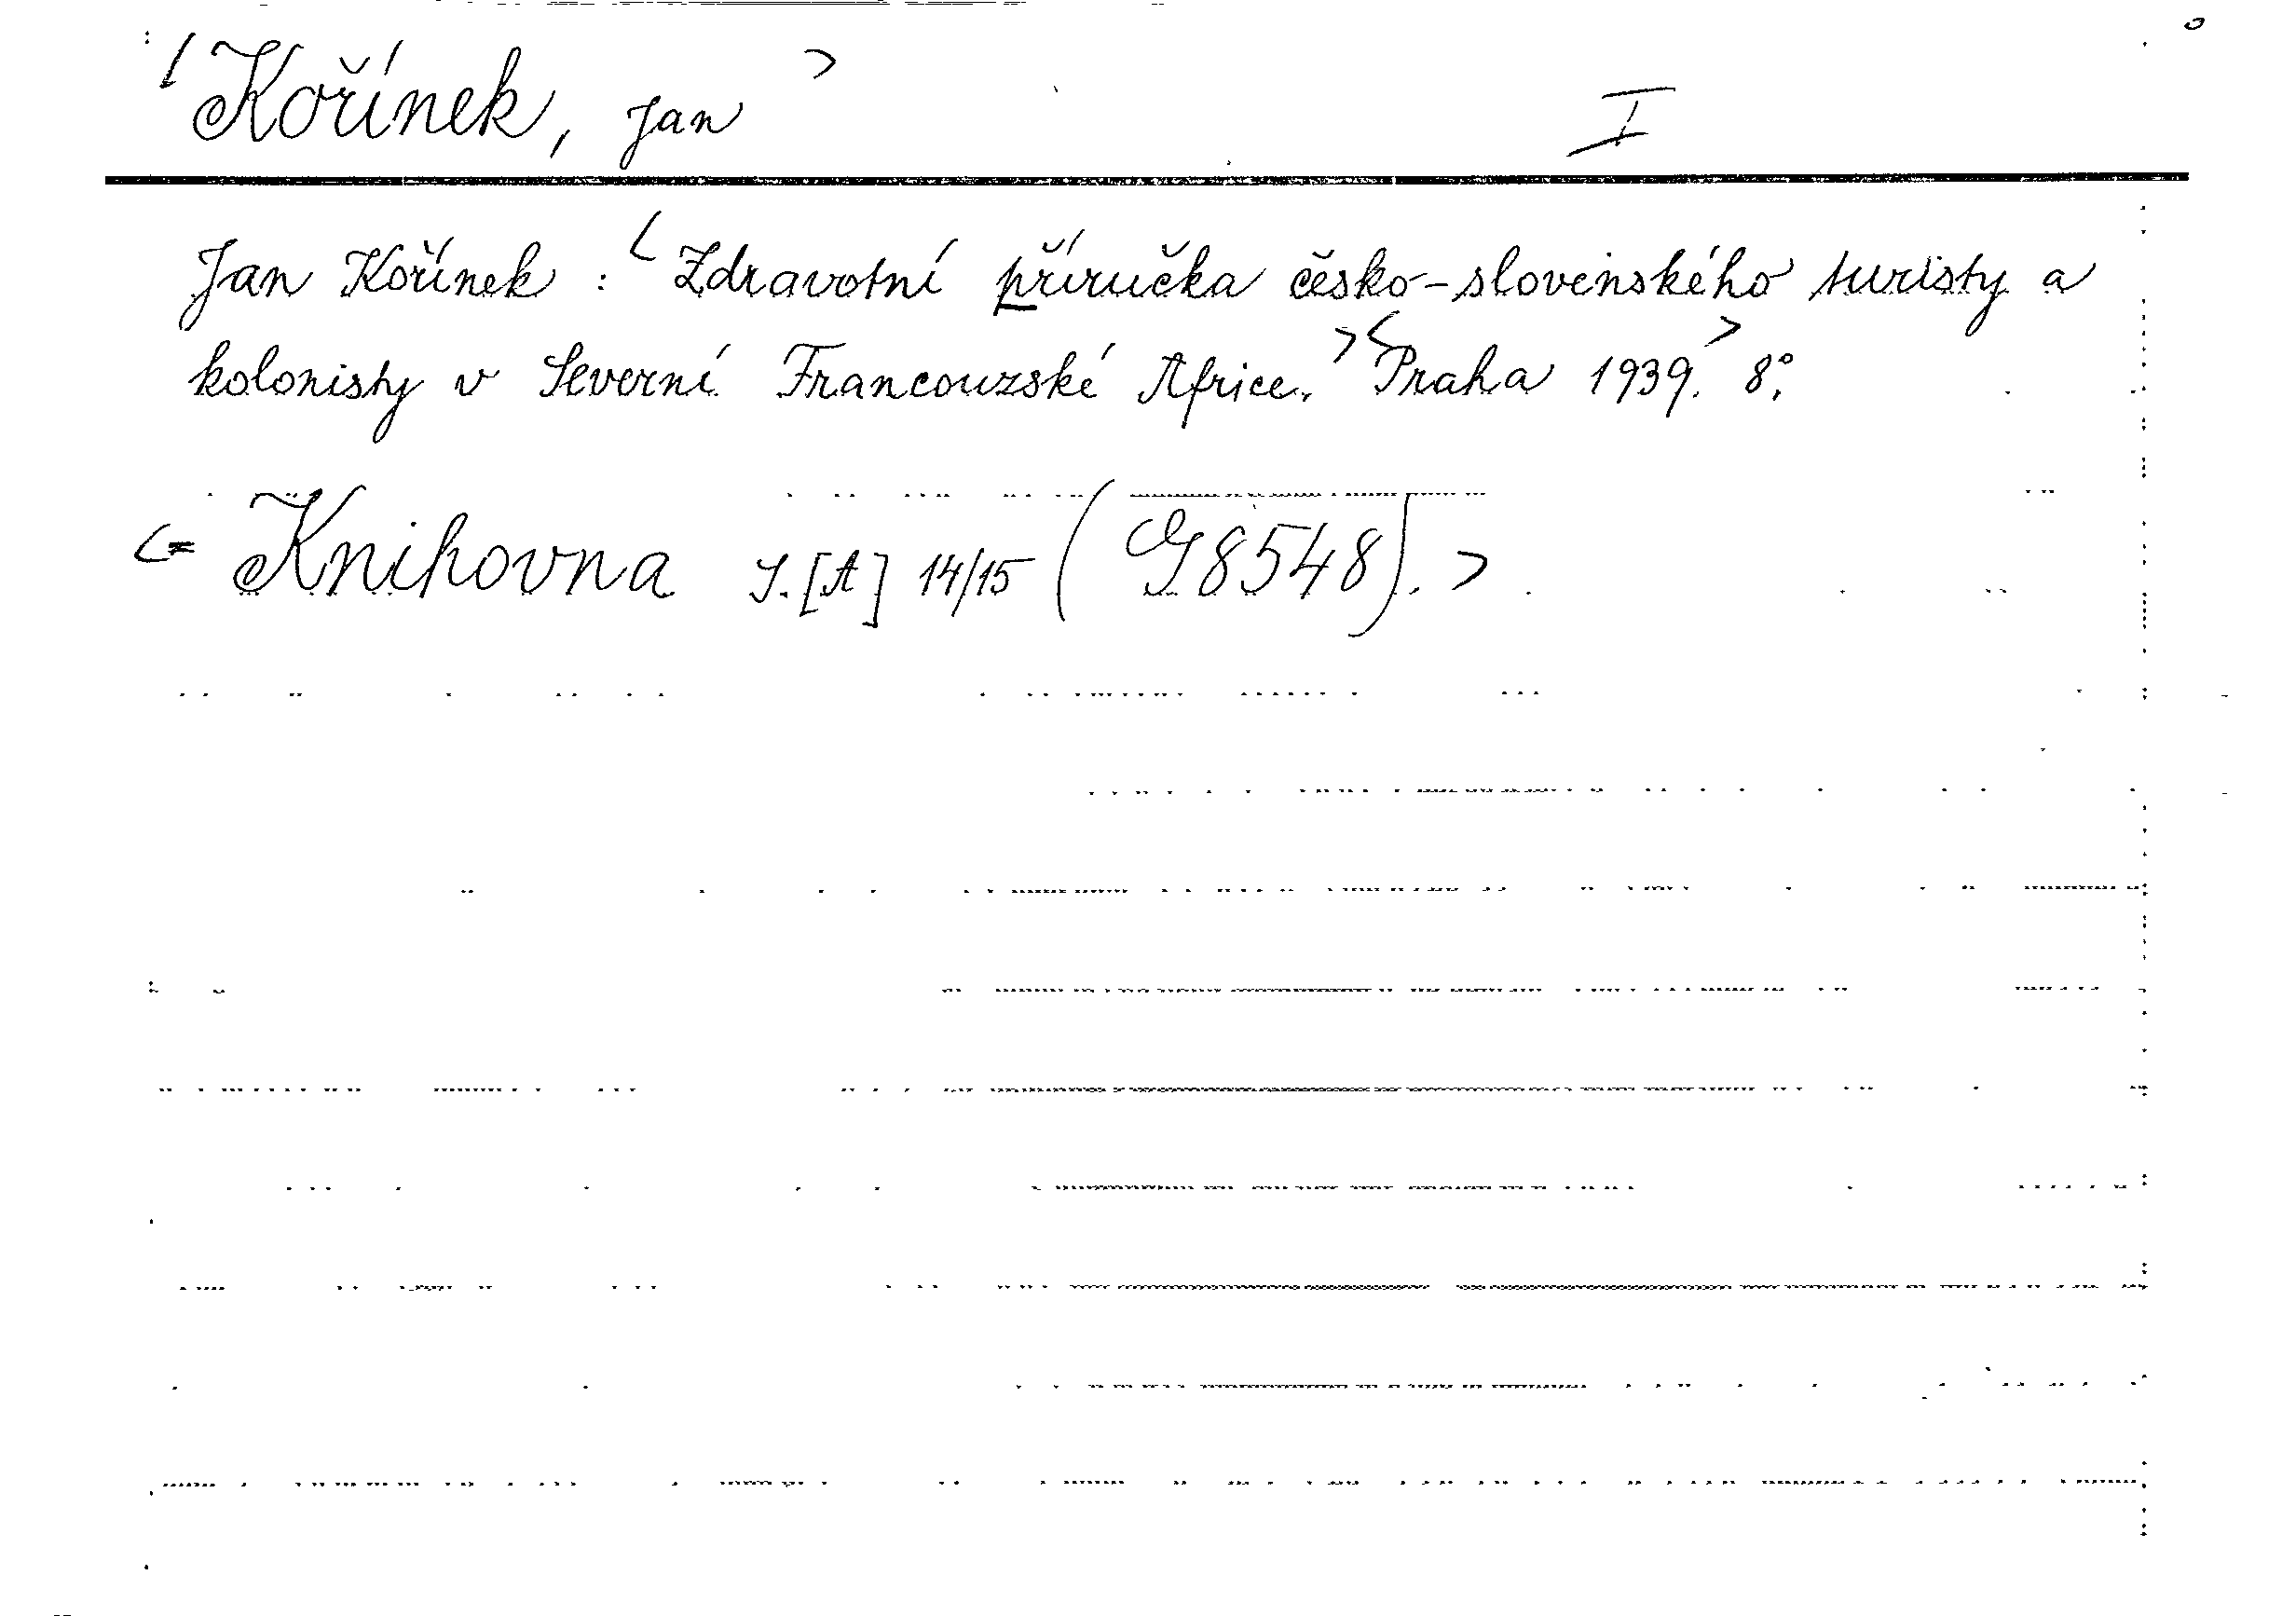 <Kořínek, Jan> I
Jan Kořínek : <Zdravotní příručka česko-slovenského turisty a
kolonisty v Severní Francouzské Africe.> <Praha 1939.> 8°.
<= Knihovna S. [A] 14/15 (G 8548).>